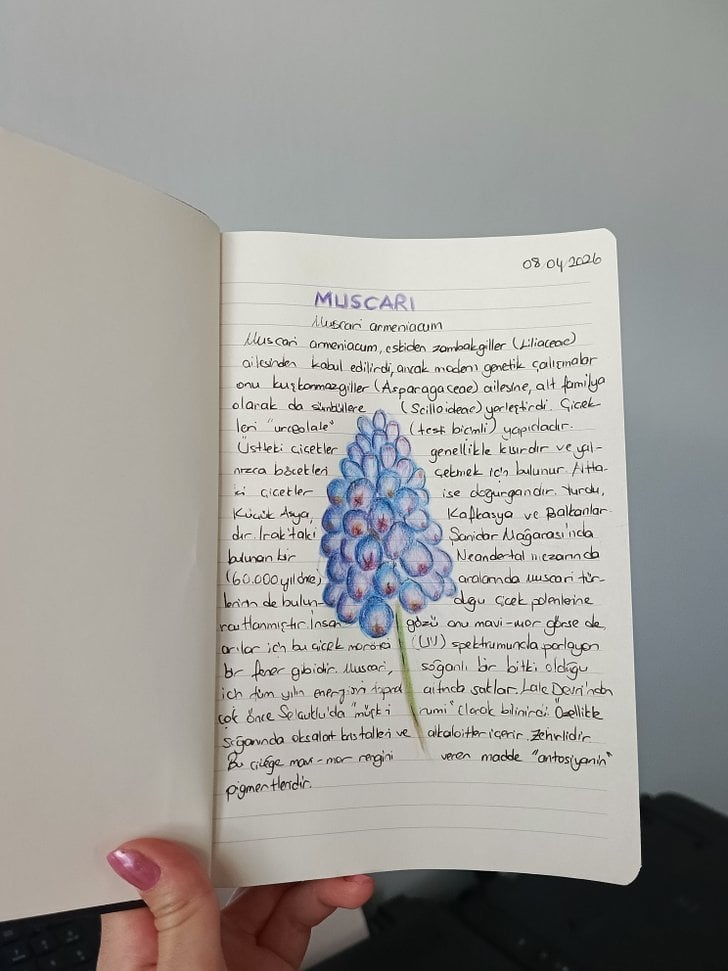 08.04.2026
MUSCARI
Muscari armeniacum
Muscari armeniacum, eskiden zambakgiller (Liliaceae)
ailesinden kabul edilirdi, ancak modern genetik çalışmalar
onu kuşkonmazgiller (Asparagaceae) ailesine, alt familya
olarak da sümbüllere (Scilloideae) yerleştirdi. Çiçek-
leri "urceolale" (testi bicimli) yapıdadır.
Üstteki çiçekler genellikle kısırdır ve yal-
nızca böcekleri çekmek için bulunur. Altta-
ki çiçekler ise doğurgandır. Yurdu,
Küçük Asya, Kafkasya ve Balkanlar-
dır. Irak'taki Sanidar Mağarası'nda
bulunan bir Neandertal mezarında
(60.000 yıl önce) aralarında muscari tür-
lerinin de bulun- duğu çiçek polenlerine
rastlanmıştır. İnsan gözü onu mavi-mor görse de,
arılar için bu çiçek morötesi (UV) spektrumunda parlayan
bir fener gibidir. Muscari, soğanlı bir bitki olduğu
için tüm yılın enerjisini toprak altında saklar. Lale Devri'nden
çok önce Selçuklu'da "müşk-i rumi" olarak bilinirdi. Özellikle
soğanında oksalat kristalleri ve alkaloitler içerir. Zehirlidir.
Bu çiçeğe mavi-mor rengini veren madde "antosiyanin"
pigmentleridir.